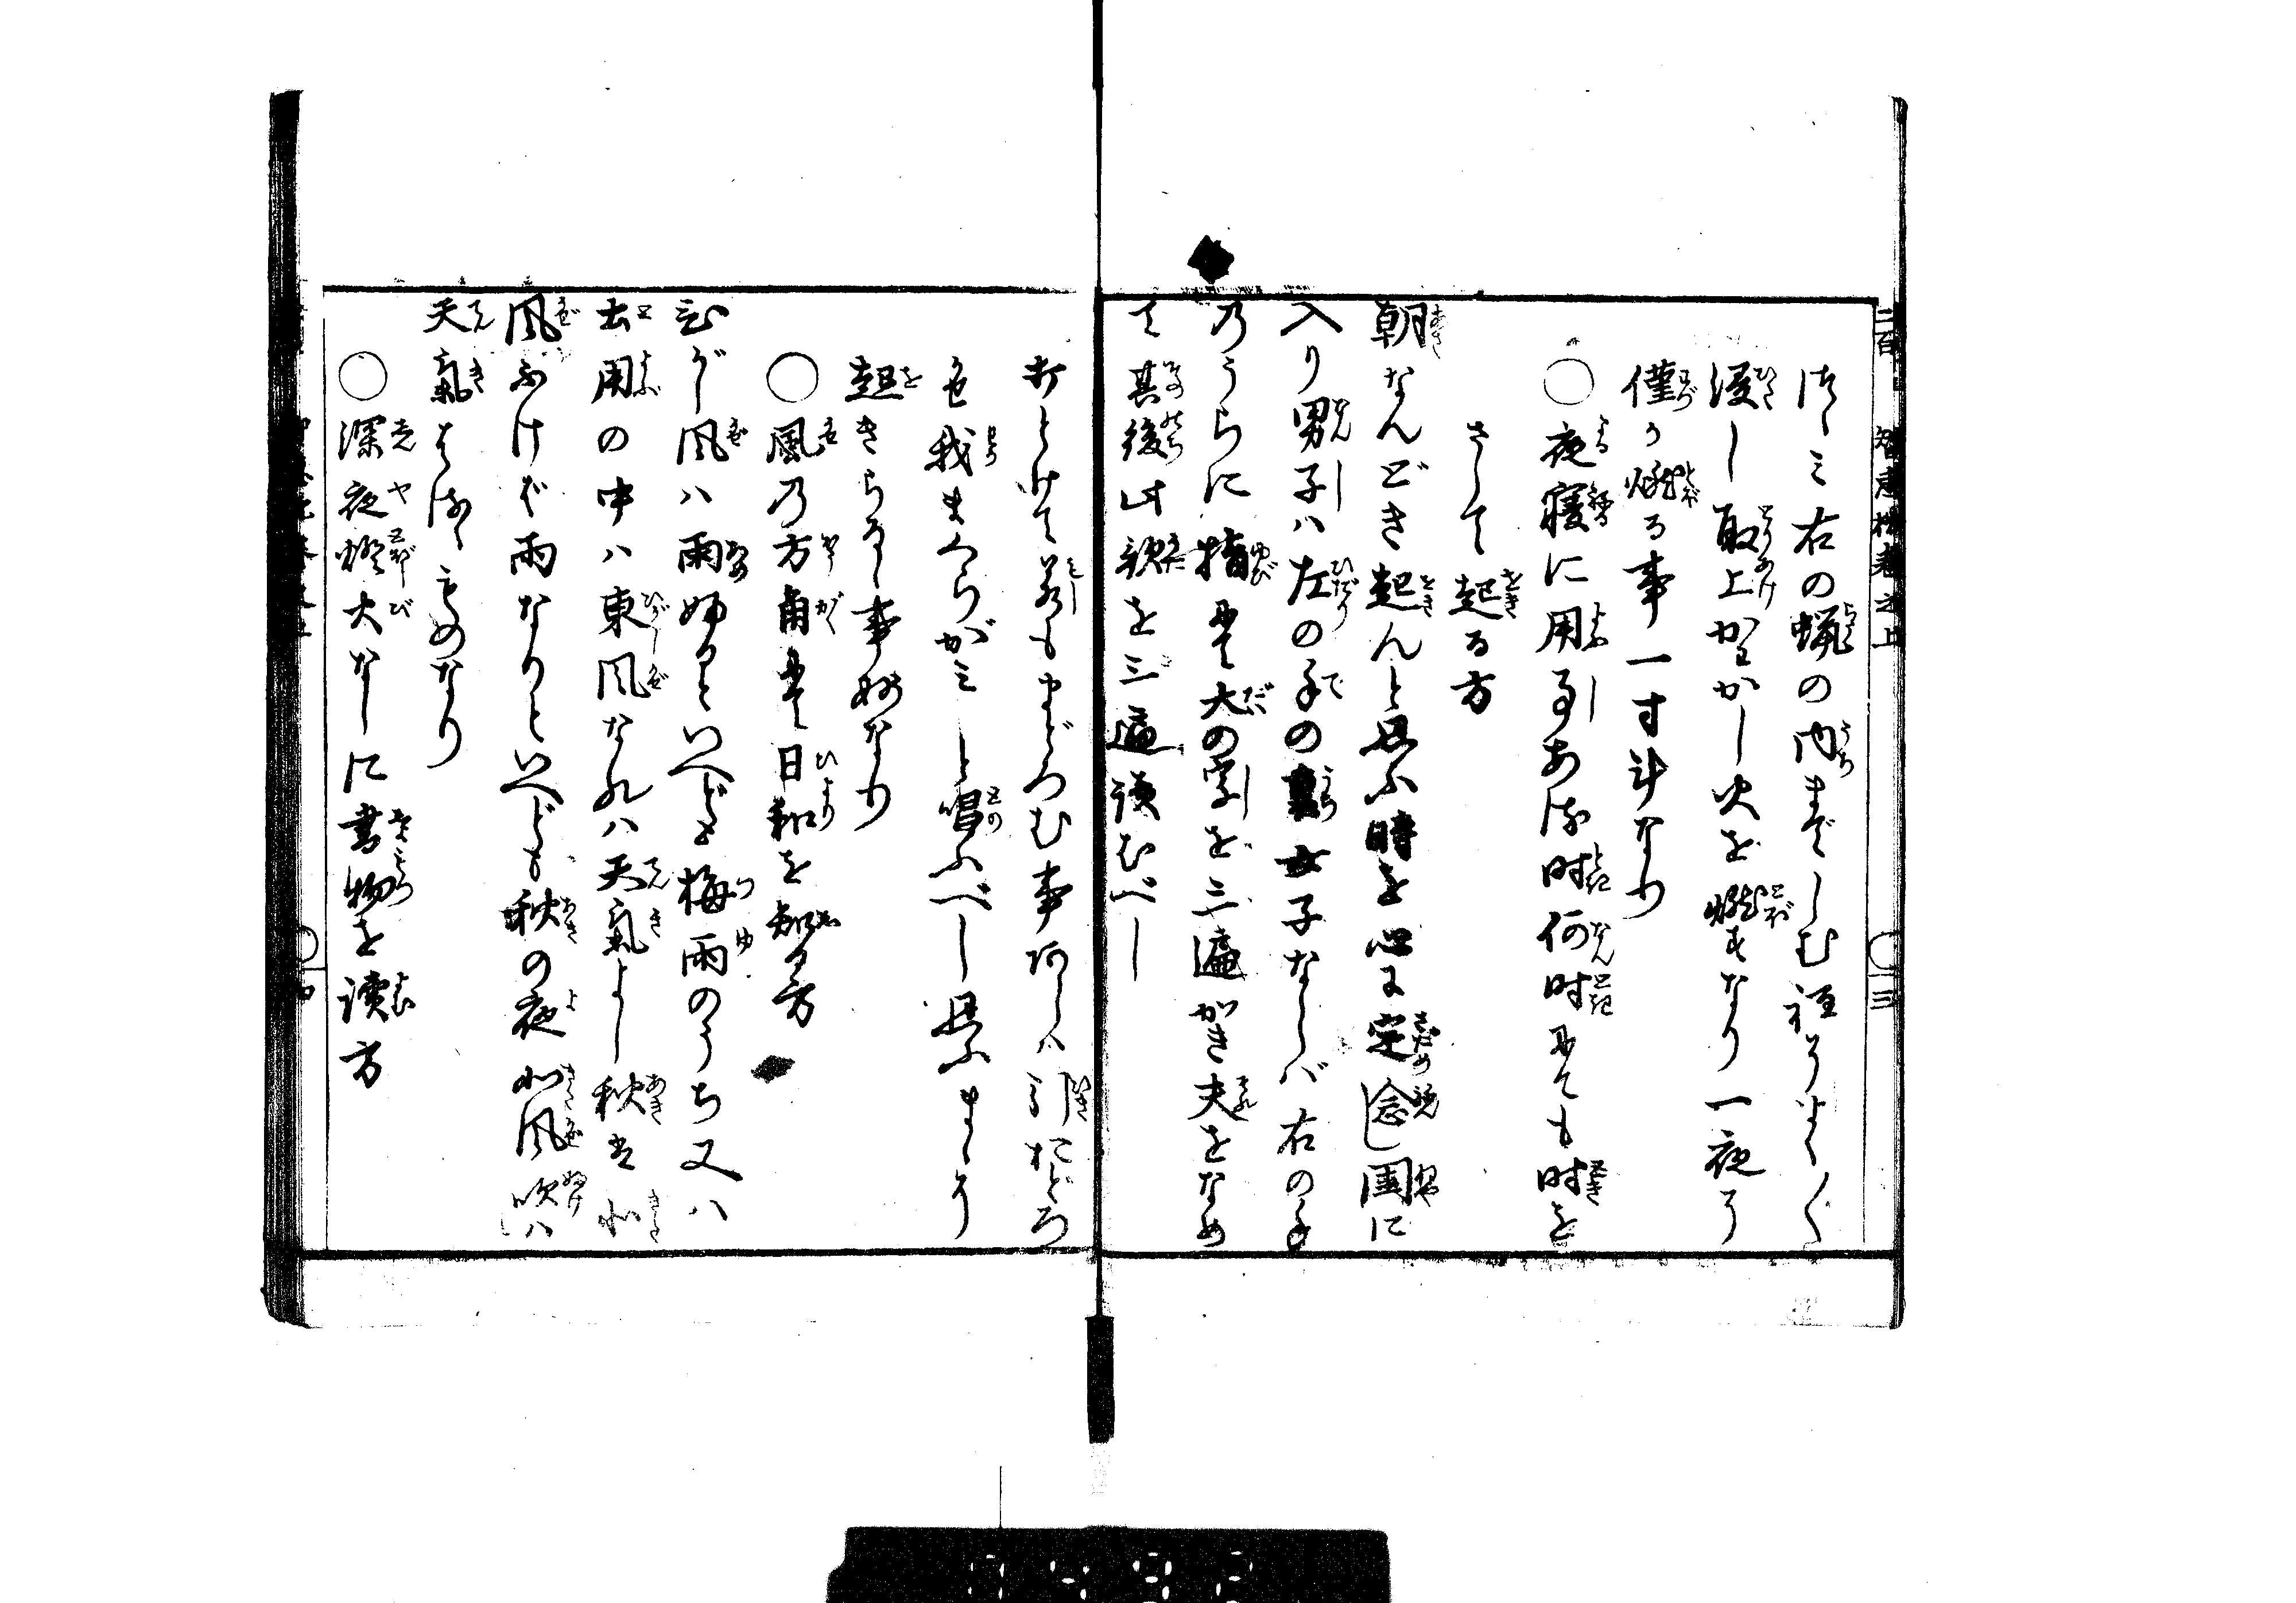 つゝみ右の蝋の内まてしむ程にしてよく〳〵
浸し取上かはかし火を燃すなり一夜に
僅か燃る事一寸斗なり
○夜寝に用事ある時何時にても時を
さして起る方
朝なんどき起んと思ふ時を心に定念し閨に
入り男子ハ左の手の裏女子ならバ右の手
のうらに指にて大の字を三遍かき夫をなめ
て其後此歌を三遍読むべし
打とけて若もまどろむ事あらハ引おどろ
かせ我まくらがミと唱ふべし思ふまゝに
起きらるゝ事妙なり
○風の方角にて日和を知る方
ひがし風ハ雨ふるといへども梅雨のうち又ハ
土用の中ハ東風なれハ天氣よし秋は北
風ふけバ雨なりといへども秋の夜北風吹ハ
天氣はるゝものなり
○深夜燈火なしに書物を読方